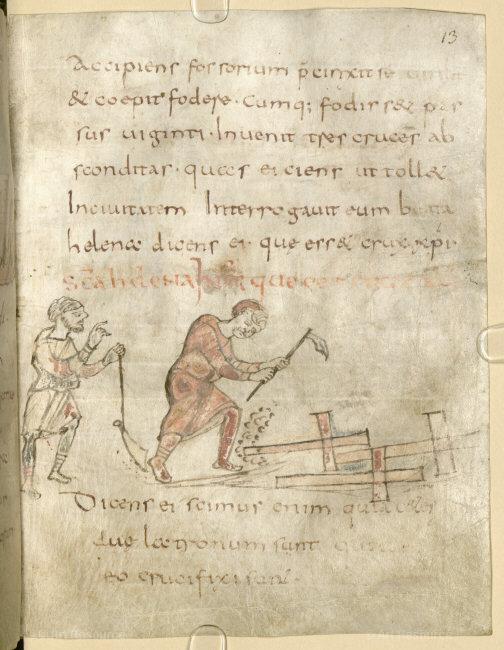 13
Accipiens fossorium p̄cinxit se
& coepit fodere · Cumq; fodiss& pas
sus uiginti · Inuenit tres cruces ab
sconditas · quas eiciens ut toll&
In ciuitatem Interrogauit eum beata
helena dicens ei · que ess& crux xp̄i ·
Sc̄a helena
Dicens ei scimus enim quia
duo latronum sunt qui
eo crucifixi sunt ·